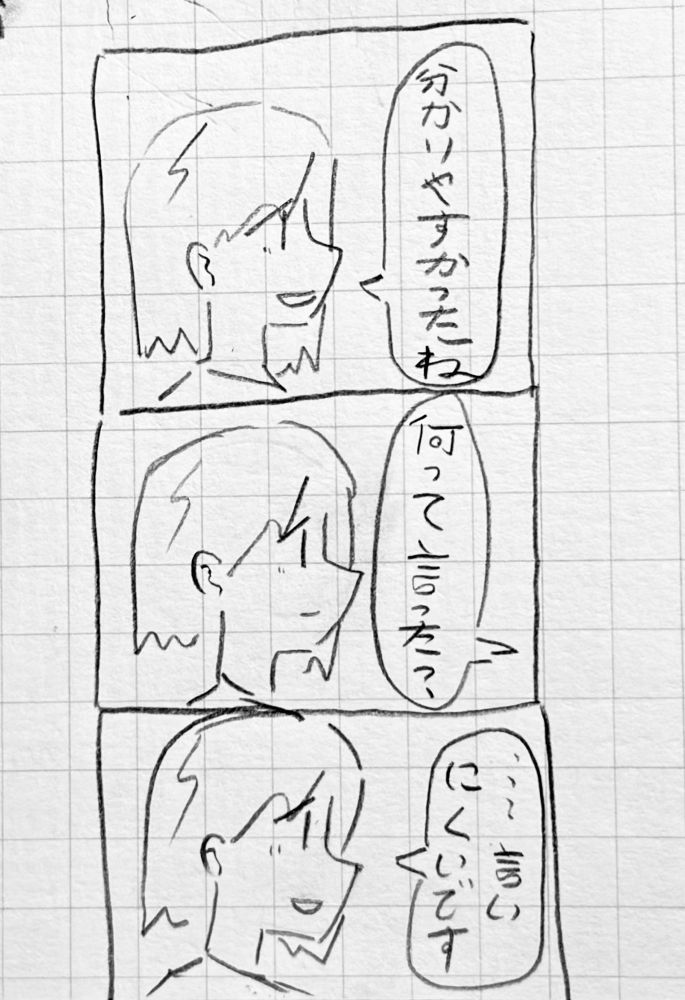 分かりやすかったね
何って言った?
…言い
にくいです